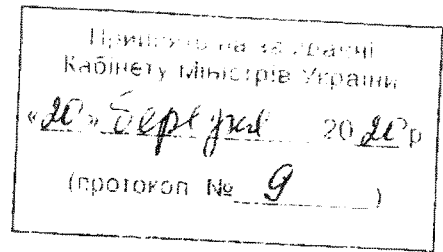 Прийнято на засіданні
Кабінету Міністрів України
«20» березня 2020р
(протокол № 9 )